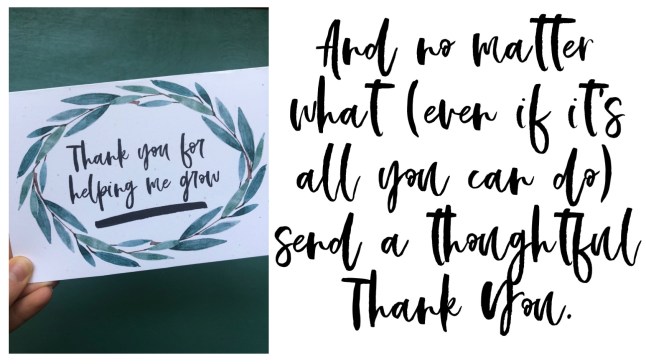 Thank you for
helping me grow
And no matter
what (even if it's
all you can do)
send a thoughtful
Thank You.